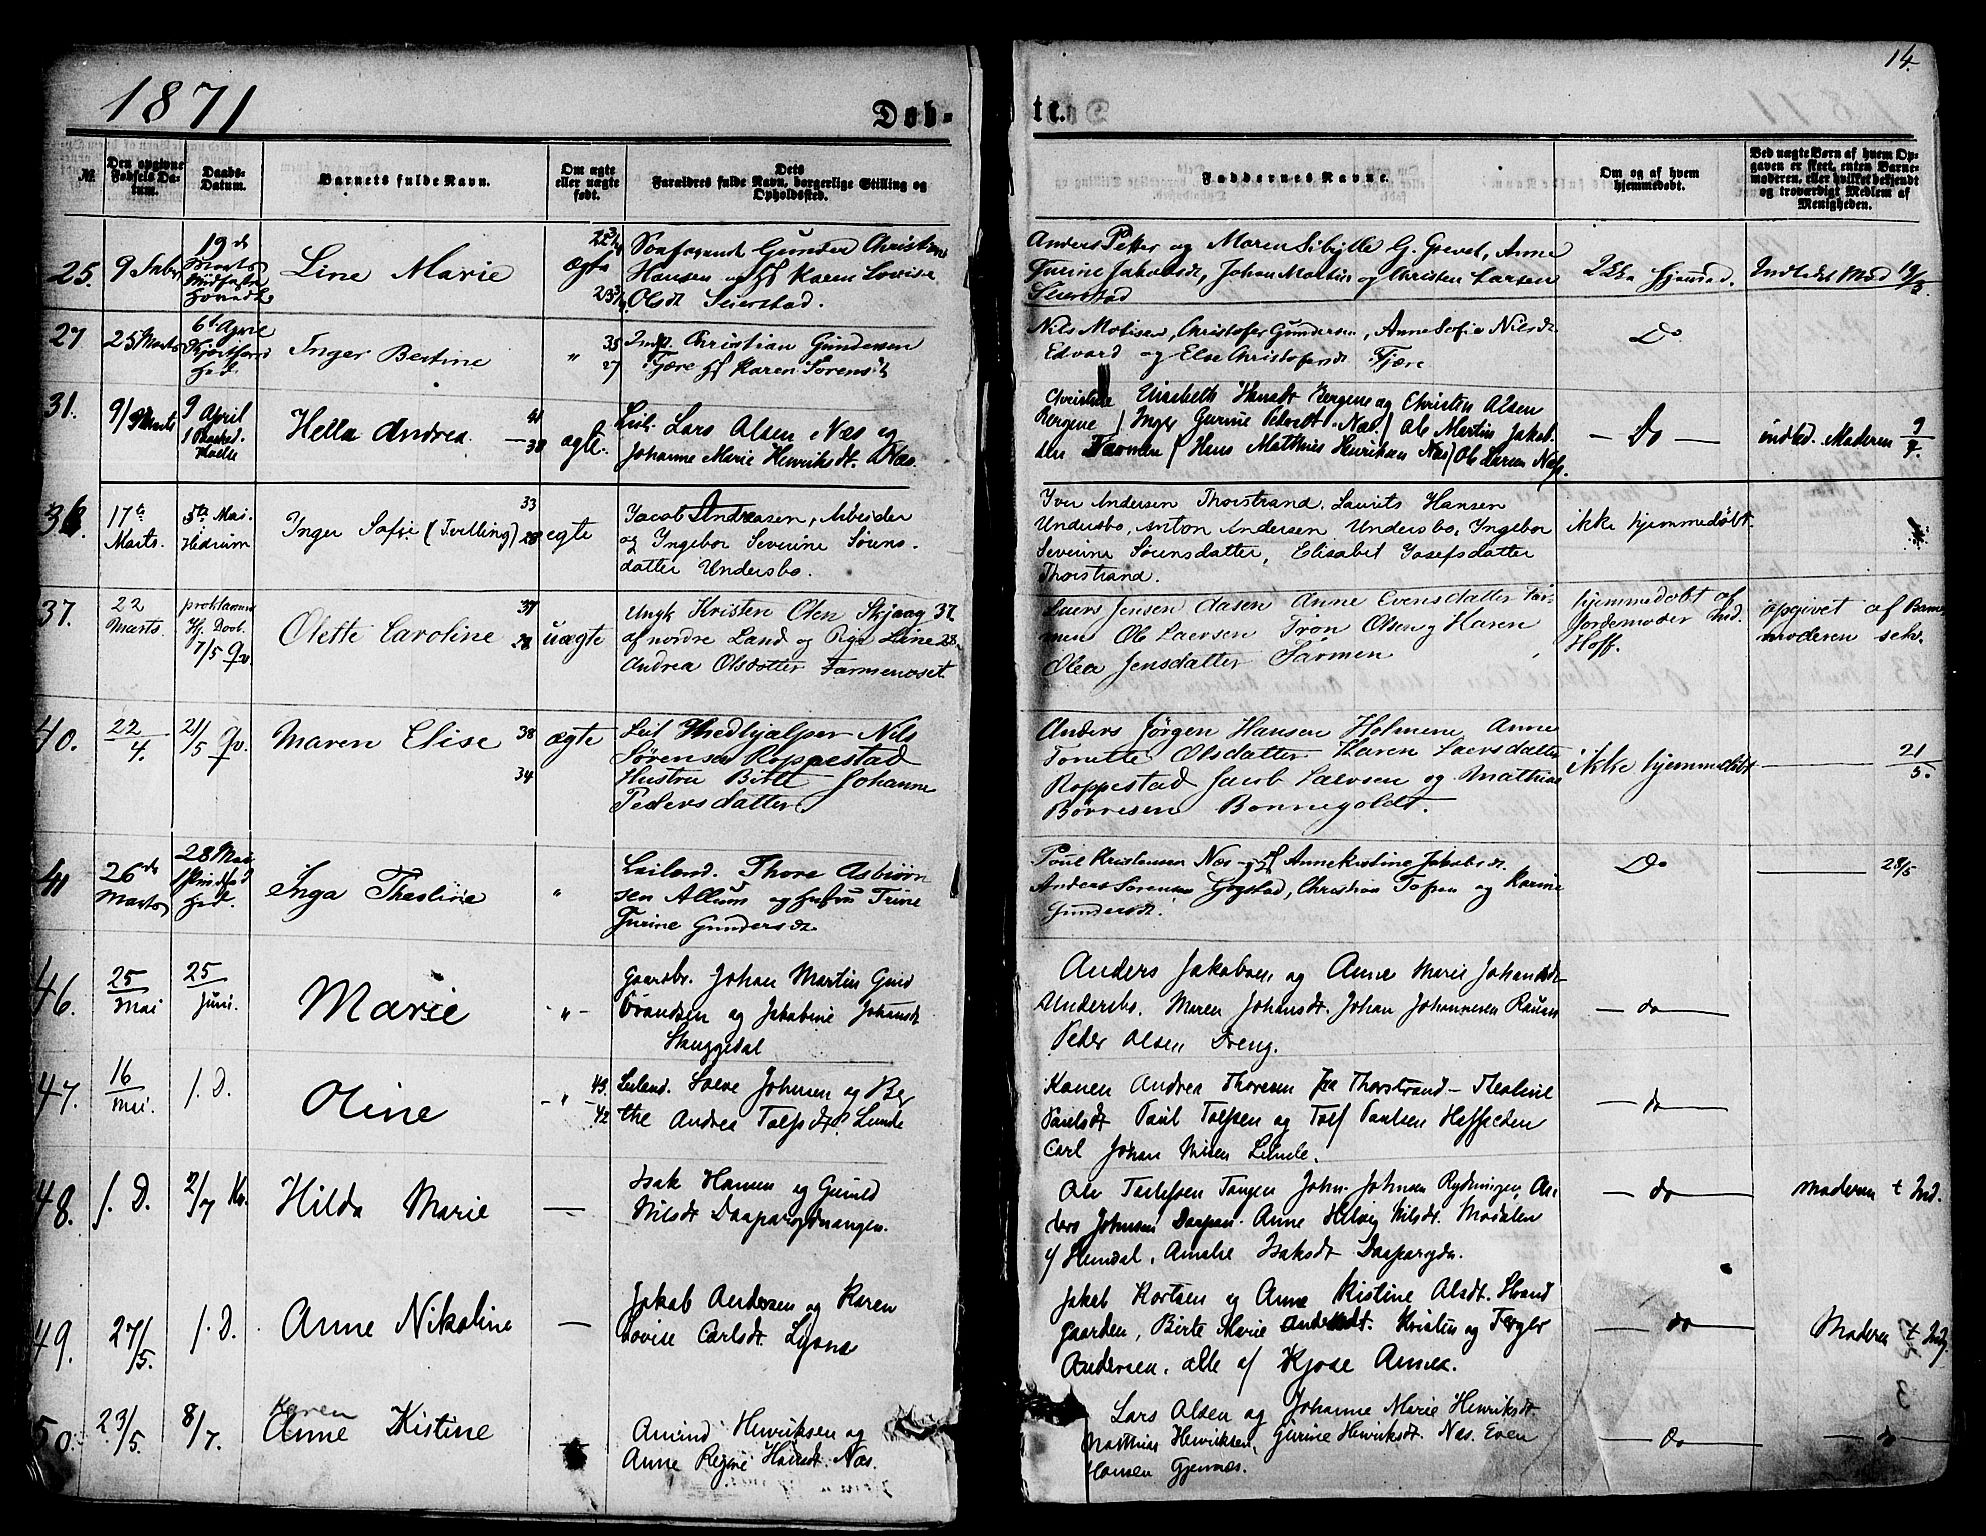 1871
Døb-
te.
14.
№
Den opgivne Fødsels Datum.
Daabs-Datum.
Barnets fulde Navn.
Om ægte eller uægte født.
Dets Forældres fulde Navn, borgerlige Stilling og Opholdssted.
Faddernes Navne.
Om og af hvem hjemmedøbt.
Ved uægte Børn af hvem Opgaven er skeet, enten Barnemoderen, eller hvilket bekjendt og troværdigt Medlem af Menigheden.
25.
19de Marts
Line Marie
ægte
Gunder Christian
Hansen og Karen Lovise
Olsdt Seierstad.
Anders Petter og Maren Sibylle G. Grevet, Anne
Gurine Jakobsdt, Johan Martin og Christen Larsen
Seierstad
27
25 Marts
6te April
Inger Bertine
"
35
27
Christian Gundersen
Fjære Karen Sørensdt
Nils Matisen, Christofer Gundersen, Anne Sofie Nilsdt
Edvard og Else Christofersdt Fjære
Do
31.
9/ Marts
9 April
Hella Andrea
41
38
ægte.
Lars Olsen Næs og
Johanne Marie Henriksdt. Næs.
Elisabeth Hansdt Bergene og Christen Olsen
Bergene / Inger Gurine Pedersdt. Næs / Ole Martin Jakob
sen / Hans Matthias Henriksen Næs / Ole Larsen Næs.
- Do -
indled. Moderen 9/7
17te Marts.
5te Mai. Hedrum
Inger Sofie (Tvilling)
33
28
egte
Jacob Andreasen, Arbeider
og Ingebor Severine Sørens-
datter Undersbo.
Iver Andersen Thorstrand. Laurits Hansen
Undersbo, Anton Andersen Undersbo, Ingebor
Severine Sørensdatter, Elisabet Josefsdatter
Thorstrand.
ikke hjemmedøbt.
37.
22 Marts
Hj. Døbt 7/5
Olette Caroline
37
28
uægte
Ungk Kristen Olsen Skjaag 37
af nordre Land og Pige Line 28
Andrea Olsdatter Farmenoset
Laers Jensen Aasen Anne Evensdatter Far-
men Ole Laersen Tron Olsen og Karen
Olea Jensdatter Farmen
hjemmedøbt af
Jordemoder
Hoff.
opgivet af Barne
moderen selv.
40.
22/4.
21/5
Maren Elise
38
34
ægte
Nils
Sørensen Roppestad
Hustru Birte Johanne
Pedersdatter
Anders Jørgen Hansen Holmene Anne
Torette Olsdatter Karen Laersdatter
Roppestad Jacob Laersen og Mathias
Børresen Bonnegoldt.
ikke hjemmedøbt
21/5.
41
26de Marts
28 Mai
Inga Thealine
"
Leiland. Thore Asbiørn
sen Allum og Hustru Trine
Gurine Gundersdt.
Poul Kristensen Næs Anne Kristine Jakobsdt
Anders Sørensen Gogstad, Christian Tofsen og Karine
Gundersdt.
Do
28/5
46.
25 Mai
25 Juni.
Marie
- " -
Gaardbr. Johan Martin Gud
brandsen og Jakobine Johansdt
Skuggedal
Anders Jakobsen og Anne Marie Johansdt
Undersbo. Maren Johansdt. Johan Johannesen Rauan
Peder Olsen Dreng.
- do -
47.
16 Mai.
f. D.
Oline
- " -
43
42
Leiland. Johnsen og Ber
the Andrea Tolfsdt Lunde
Karen Andrea Thoresen fra Thorstrand - Thealine
Paulsdt Paul Tolfsen og Tolf Paulsen
Carl Johan Lunde.
- do -
48.
f. D.
2/7
Hilda Marie
-
Isak Hansen og Gunild
Nilsdt
Ole Tollefsen Tangen John Johnsen Rydningen, An-
ders Johnsen Daapan. Anne Helvig Nilsdt.
Hemdal, Amalie Isaksdt
- do -
Moderen t Ind.
49.
27/5.
f. D.
Anne Nikoline
-
Jakob Andersen og Karen
Lovise Carlsdt.
Jakob Kortsen og Anne Kistine Olsdt. Strand
gaarden, Birte Marie Andersdt. Kristen og Torger
Andersen, alle af Kjose Annex.
- do -
Moderen t Ind.
50.
23/5.
8/7.
Karen
Anne Kistine
Amund Henriksen og
Anne Regine Hansdt. Næs.
Lars Olsen og Johanne Marie Henriksdt.
Matthias Henriksen, Gurine Henriksdt Næs. Even
Hansen Gjennæs.
- do -
- do -